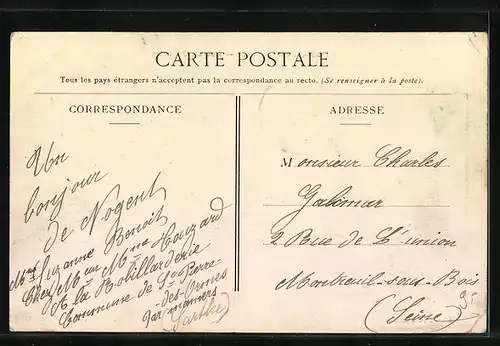 CARTE POSTALE
Tous les pays étrangers n'acceptent pas la correspondance au recto. (Se renseigner à la poste).
CORRESPONDANCE
Un
bonjour
de Nogent
Suzanne Benoit
Chez Mr Mme Houzard
A la Robillarderie
Commune de St Pierre-
-des-Ormes
par mamers
(Sarthe)
ADRESSE
Monsieur Charles
Galimar
2 Rue de L'union
Montreuil-sous-Bois
(Seine)